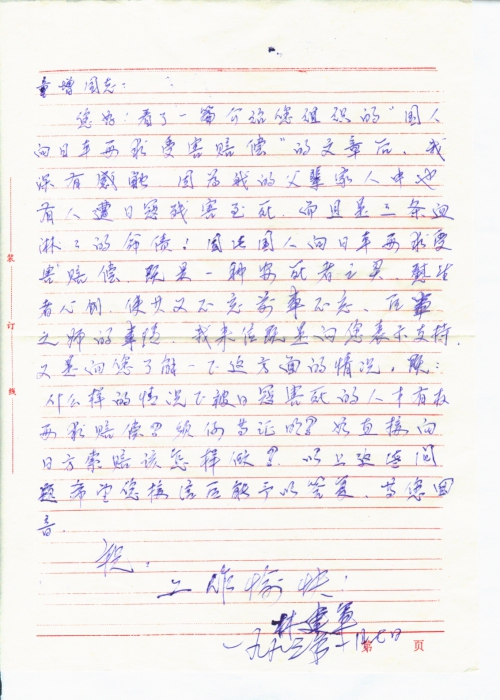 童增同志：
您好！看了一篇介绍您组织的“国人
向日本要求受害赔偿”的文章后，我
深有感触，因为我的父辈家人中也
有人遭日寇残害至死，而且是三条血
淋淋的命债！因此国人向日本要求受
害赔偿，既是一种安死者之灵，慰生
者心创，使其又不忘前事不忘，后事
之师的事情，我来信既是向您表示支持，
又是向您了解一下这方面的情况，既：
什么样的情况下被日寇害死的人才有权
要求赔偿？须何旁证吗？如直接向
日方索赔该怎样做？以上这些问
题希望您接信后能予以答复，等您回
音。
祝：
工作愉快！
林
一九九三年
第 页
装
订
线